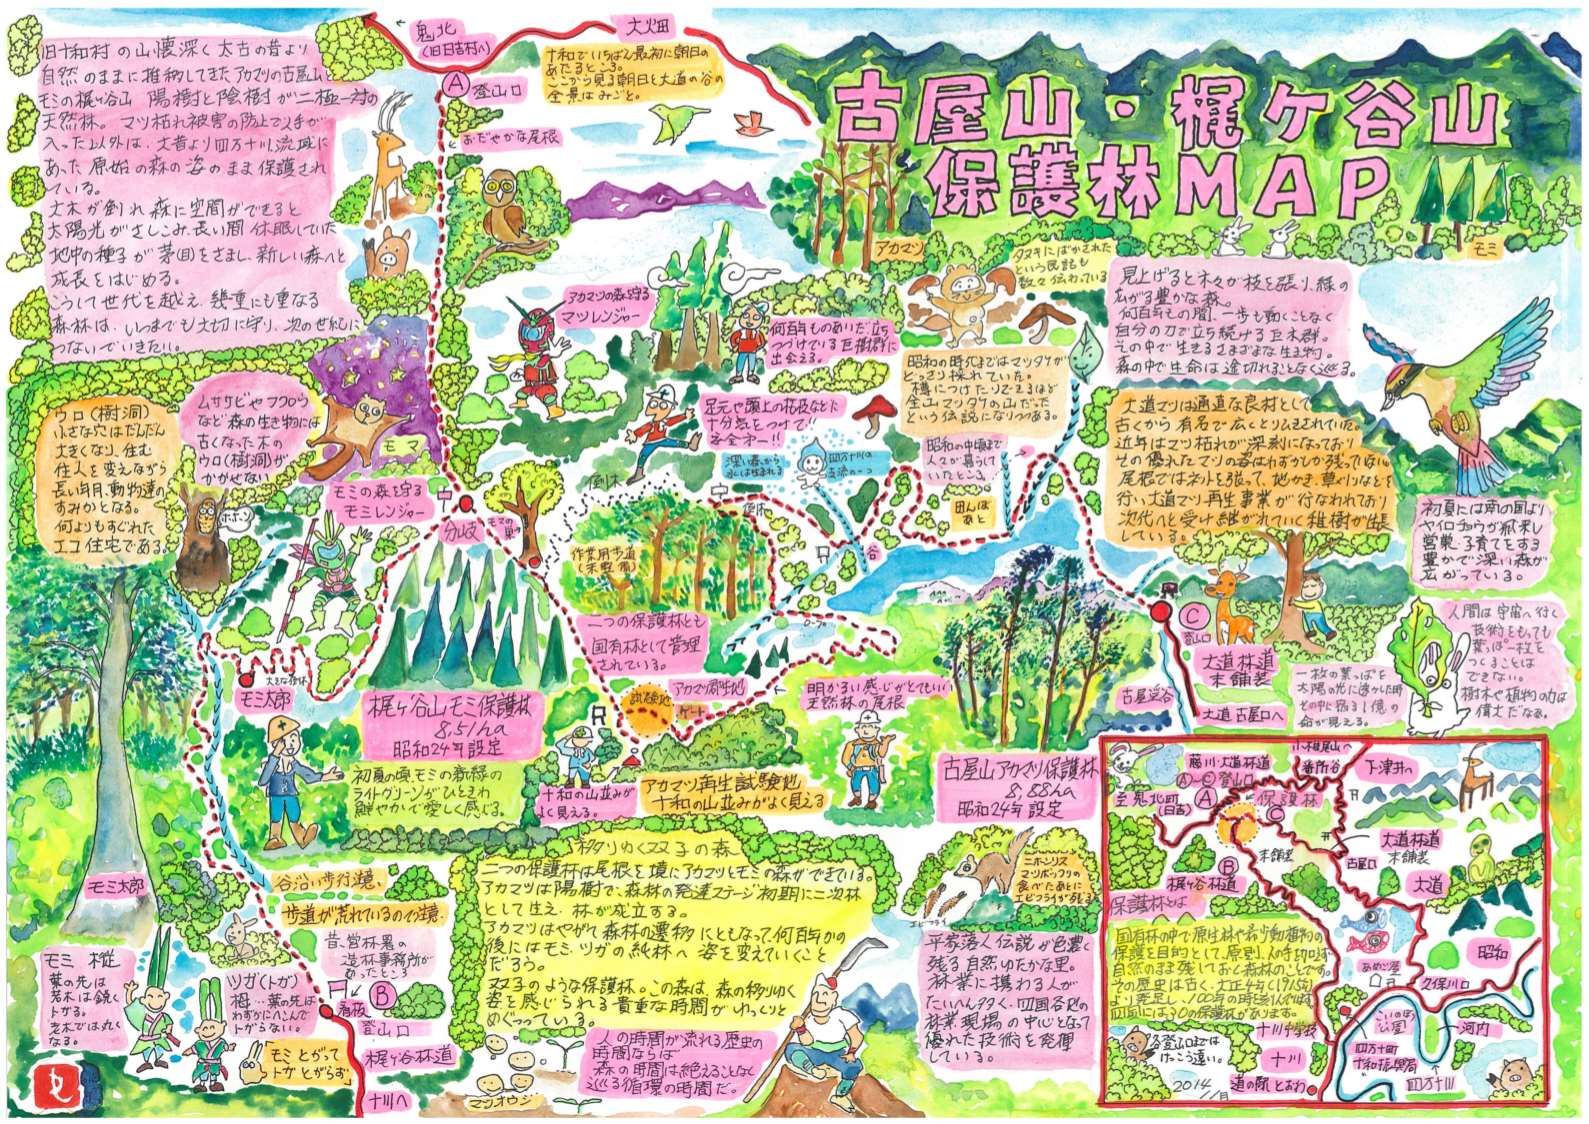 古屋山・梶ケ谷山
保護林MAP
鬼北
(旧日吉村へ)
大火田
Ⓐ 登山口
十和でいちばん最初に朝日の
あたるところ。
ここから見る朝日と大道の谷の
全景はみごと。
おだやかな尾根
旧十和村の山懐深く太古の昔より
自然のままに推移してきたアカマツの古屋山と
モミの梶ヶ谷山 陽樹と陰樹が二極一対の
天然林。マツ枯れ被害の防止で人手が
入った以外は、大昔より四万十川流域に
あった原始の森の姿のまま保護され
ている。
大木が倒れ森に空間ができると
太陽光がさしこみ、長い間休眠していた
地中の種子が芽(目)をさまし、新しい森へと
成長をはじめる。
こうして世代を越え、幾重にも重なる
森林は、いつまでも大切に守り、次の世紀に
つないでいきたい。
アカマツ
モミ
タヌキにばかされた
という民話も
数々伝わっている
見上げると木々が枝を張り、緑の
広がる豊かな森。
何百年もの間、一歩も動くことなく
自分の力で立ち続ける巨木群。
その中で生きるさまざまな生き物。
森の中で生命は途切れることなく巡る。
アカマツの森を守る
マツレンジャー
何百年ものあいだ立ち
つづけている巨樹群に
出会える。
昭和の時代まではマツタケが
どっさり採れていた。
樽につけたりできるほど
全山マツタケの山だった
という伝説になりつつある。
足元や頭上の枯枝などに
十分気をつけて!!
安全オー!!
昭和の中頃まで
人々が暮らして
いたところ。
深い森から
水は生まれる
四万十川の
支流の一つ
大道マツは通直な良材として
古くから有名で広くとりムきされていた。
近年はマツ枯れが深刻になっており
その優れたマツの姿はわずかしか残っていない
尾根ではネットを張って、地かき、草メリなどを
行い大道マツ再生事業が行なわれており
次代へと受け継がれていく稚樹が出張
している。
初夏には南の国より
ヤイロチョウが飛来し
営巣、子育てをする
豊かで深い森が
広がっている。
ウロ(樹洞)
小さな穴はだんだん
大きくなり、住む
住人を変えながら
長い年月、動物達の
すみかとなる。
何よりもすぐれた
エコ住宅である。
ムササビやフクロウ
など森の生き物には
古くなった木の
ウロ(樹洞)が
かかせない
モマ
ホホーッ
モミの森を守る
モミレンジャー
分岐
モマの巣
倒木
倒木
作業用歩道
(未整備)
田んぼ
あと
谷
二つの保護林とも
国有林として管理
されている。
Ⓒ
登山口
大道林道
未舗装
古屋渓谷
大道 古屋口へ
一枚の葉っぱを
太陽の光に透かした時
その中に宿る1億の
命が見える。
人間は宇宙へ行く
技術をもっても
葉っぱ一枚を
つくることは
できない。
樹木や植物の力は
偉大だなぁ。
モミ太郎
大きな倒木
梶ヶ谷山モミ保護林
8,51ha
昭和24年設定
初夏の頃、モミの新緑の
ライトグリーンがひときわ
鮮やかで愛しく感じる。
試験地
アカマツ原生地
ゲート
明かるい感じがとてもいい
天然林の尾根
十和の山並みが
よく見える。
アカマツ再生試験地
十和の山並みがよく見える
古屋山アカマツ保護林
8,88ha
昭和24年設定
モミ太郎
谷沿い歩行注意、
歩道が荒れているので注意。
昔、営林署の
造林事務所が
あったところ
看板
Ⓑ
登山口
梶ヶ谷林道
十川へ
モミ 樅
葉の先は
若木は鋭く
トがる。
老木では丸く
なる。
ツガ(トガ)
栂…葉の先は
わずかにへこんで
トがらない。
「モミ とがって
トガ とがらず」
移りゆく双子の森
二つの保護林は尾根を境にアカマツとモミの森ができている。
アカマツは陽樹で、森林の発達ステージ初期に二次林
として生え、林が成立する。
アカマツはやがて森林の遷移にともなって、何百年かの
後にはモミ・ツガの純林へ姿を変えていくこと
だろう。
双子のような保護林。この森は、森の移りゆく
姿を感じられる貴重な時間がゆっくりと
めぐっている。
人の時間が流れる歴史の
時間ならば
森の時間は絶えることなく
巡る循環の時間だ。
マツオウジ
ニホンリス
マツボックリの
食べたあとに
エビフライが残る
エビフライ
平家落人伝説が色濃く
残る自然ゆたかな里。
林業に携わる人が
たいへん多く、四国各地の
林業現場の中心となって
優れた技術を発揮
している。
藤川・大道林道
Ⓐ〜Ⓒ登山口
小椎尾山へ
番所谷
下津井へ
至鬼北町
(日吉)
Ⓐ
保護林
Ⓒ
大道林道
未舗装
未舗装
古屋口
Ⓑ
梶ヶ谷林道
大道
保護林とは
国有林の中で原生林や希少動植物の
保護を目的として、原則、人の手は加えず
自然のまま残しておく森林のことです。
その歴史は古く、大正4年(1915年)
より発足し、100年の時を刻んでいます。
四国には30の保護林があります。
昭和
あめご屋
久保川口
こいのぼり
公園
河内
十川中学校
十川
道の駅とおわ
四万十町
十和振興局
四万十川
各登山口までは
けっこう遠い。
2014
11月